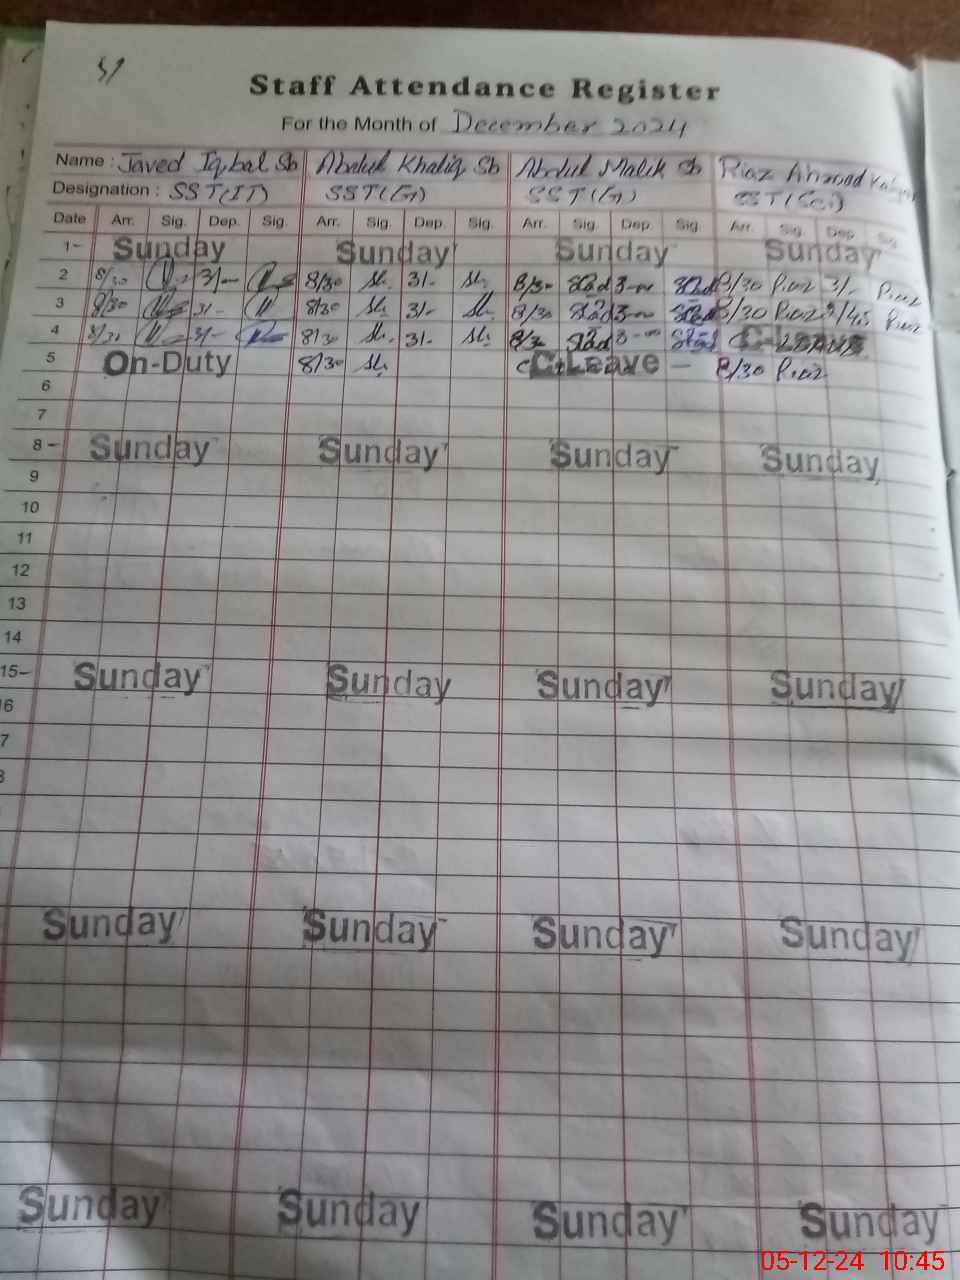 Staff Attendance Register
For the Month of December 2024
Name : Javed Iqbal Sb Abdul Khaliq Sb Abdul Malik Sb Riaz Ahmad
Designation : SST(IT) SST(G) SST(G) SST(Sci)
Date Arr. Sig. Dep. Sig. Arr. Sig. Dep. Sig. Arr. Sig. Dep. Sig Arr. Sig. Dep Sig
1- Sunday Sunday Sunday Sunday
2 8/30 3/- 8/30 3/- 8/30 3-00 8/30 Riaz 3/- Riaz
3 8/30 3/- 8/30 3/- 8/30 3-00 8/30 Riaz 2/45 Riaz
4 8/30 3/- 8/30 3/- 8/30 3-00 C-Leave
5 On-Duty 8/30 C-Leave - 8/30 Riaz
6
7
8- Sunday Sunday Sunday Sunday
9
10
11
12
13
14
15- Sunday Sunday Sunday Sunday
16
7
Sunday Sunday Sunday Sunday
Sunday Sunday Sunday Sunday
05-12-24 10:45